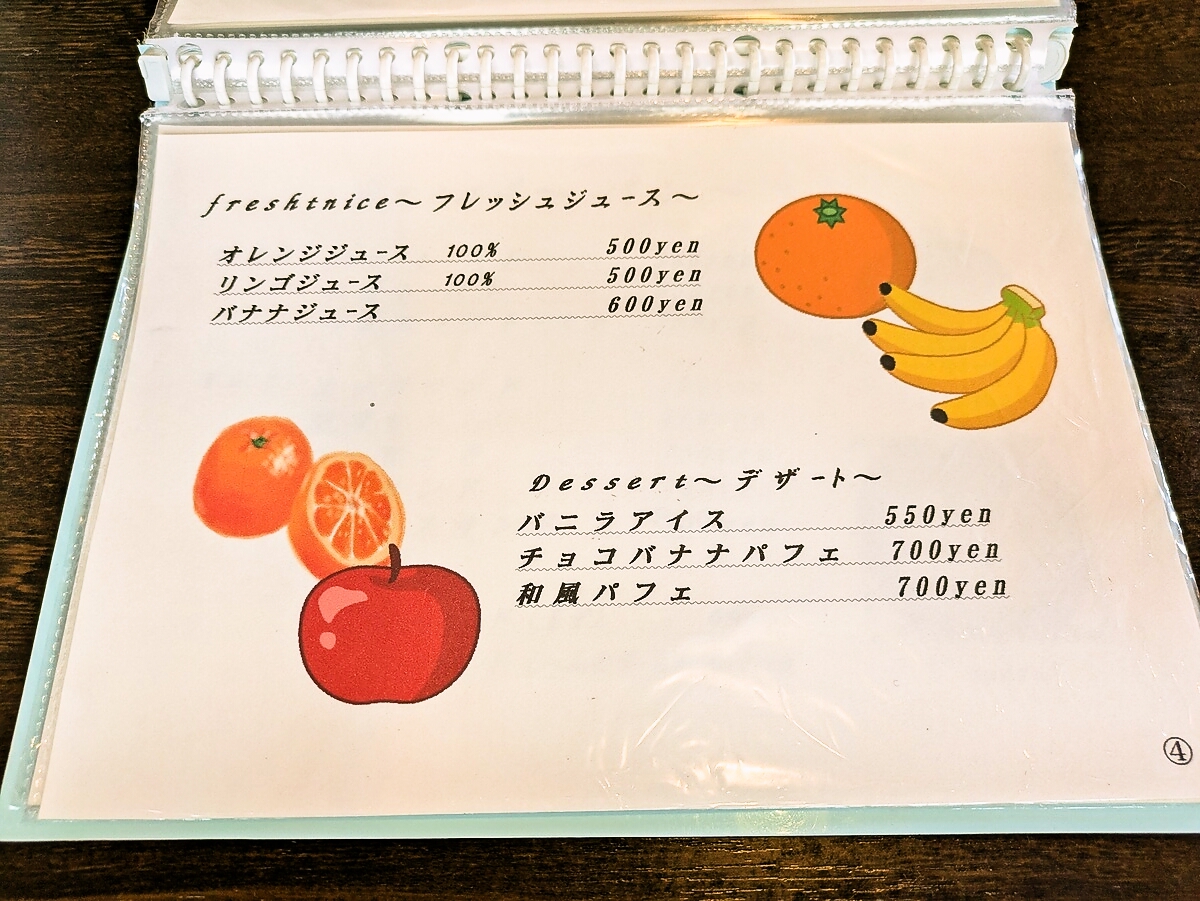 freshtnice～フレッシュジュース～
オレンジジュース 100% 500yen
リンゴジュース 100% 500yen
バナナジュース 600yen
Dessert～デザート～
バニラアイス 550yen
チョコバナナパフェ 700yen
和風パフェ 700yen
④